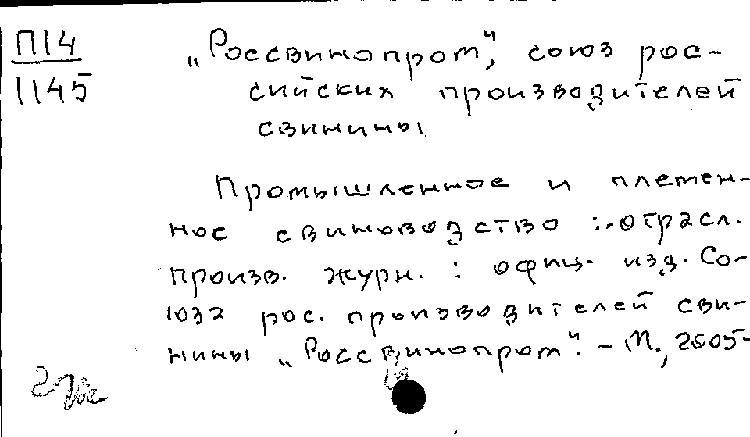 П14
1145
„Россвинопром“, союз рос-
сийских производителей
свинины
Промышленное и племен-
ное свиноводство : отрасл.
произв. журн. : офиц. изд. Со-
юза рос. производителей сви-
нины „Россвинопром“. – М., 2005-